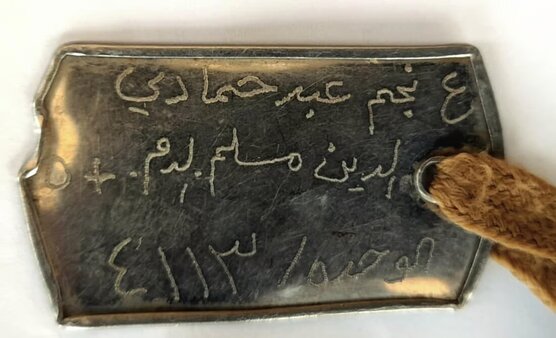 ع نجم عبد حمادي
الدين مسلم الدم + o
الوحده / ٤١١٣